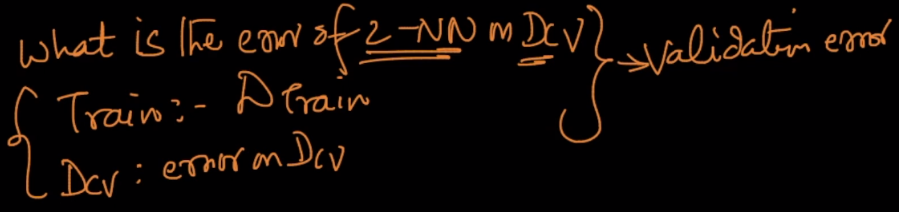 What is the error of 2-NN on Dcv } → Validation error
Train :- DTrain
Dcv : error on Dcv